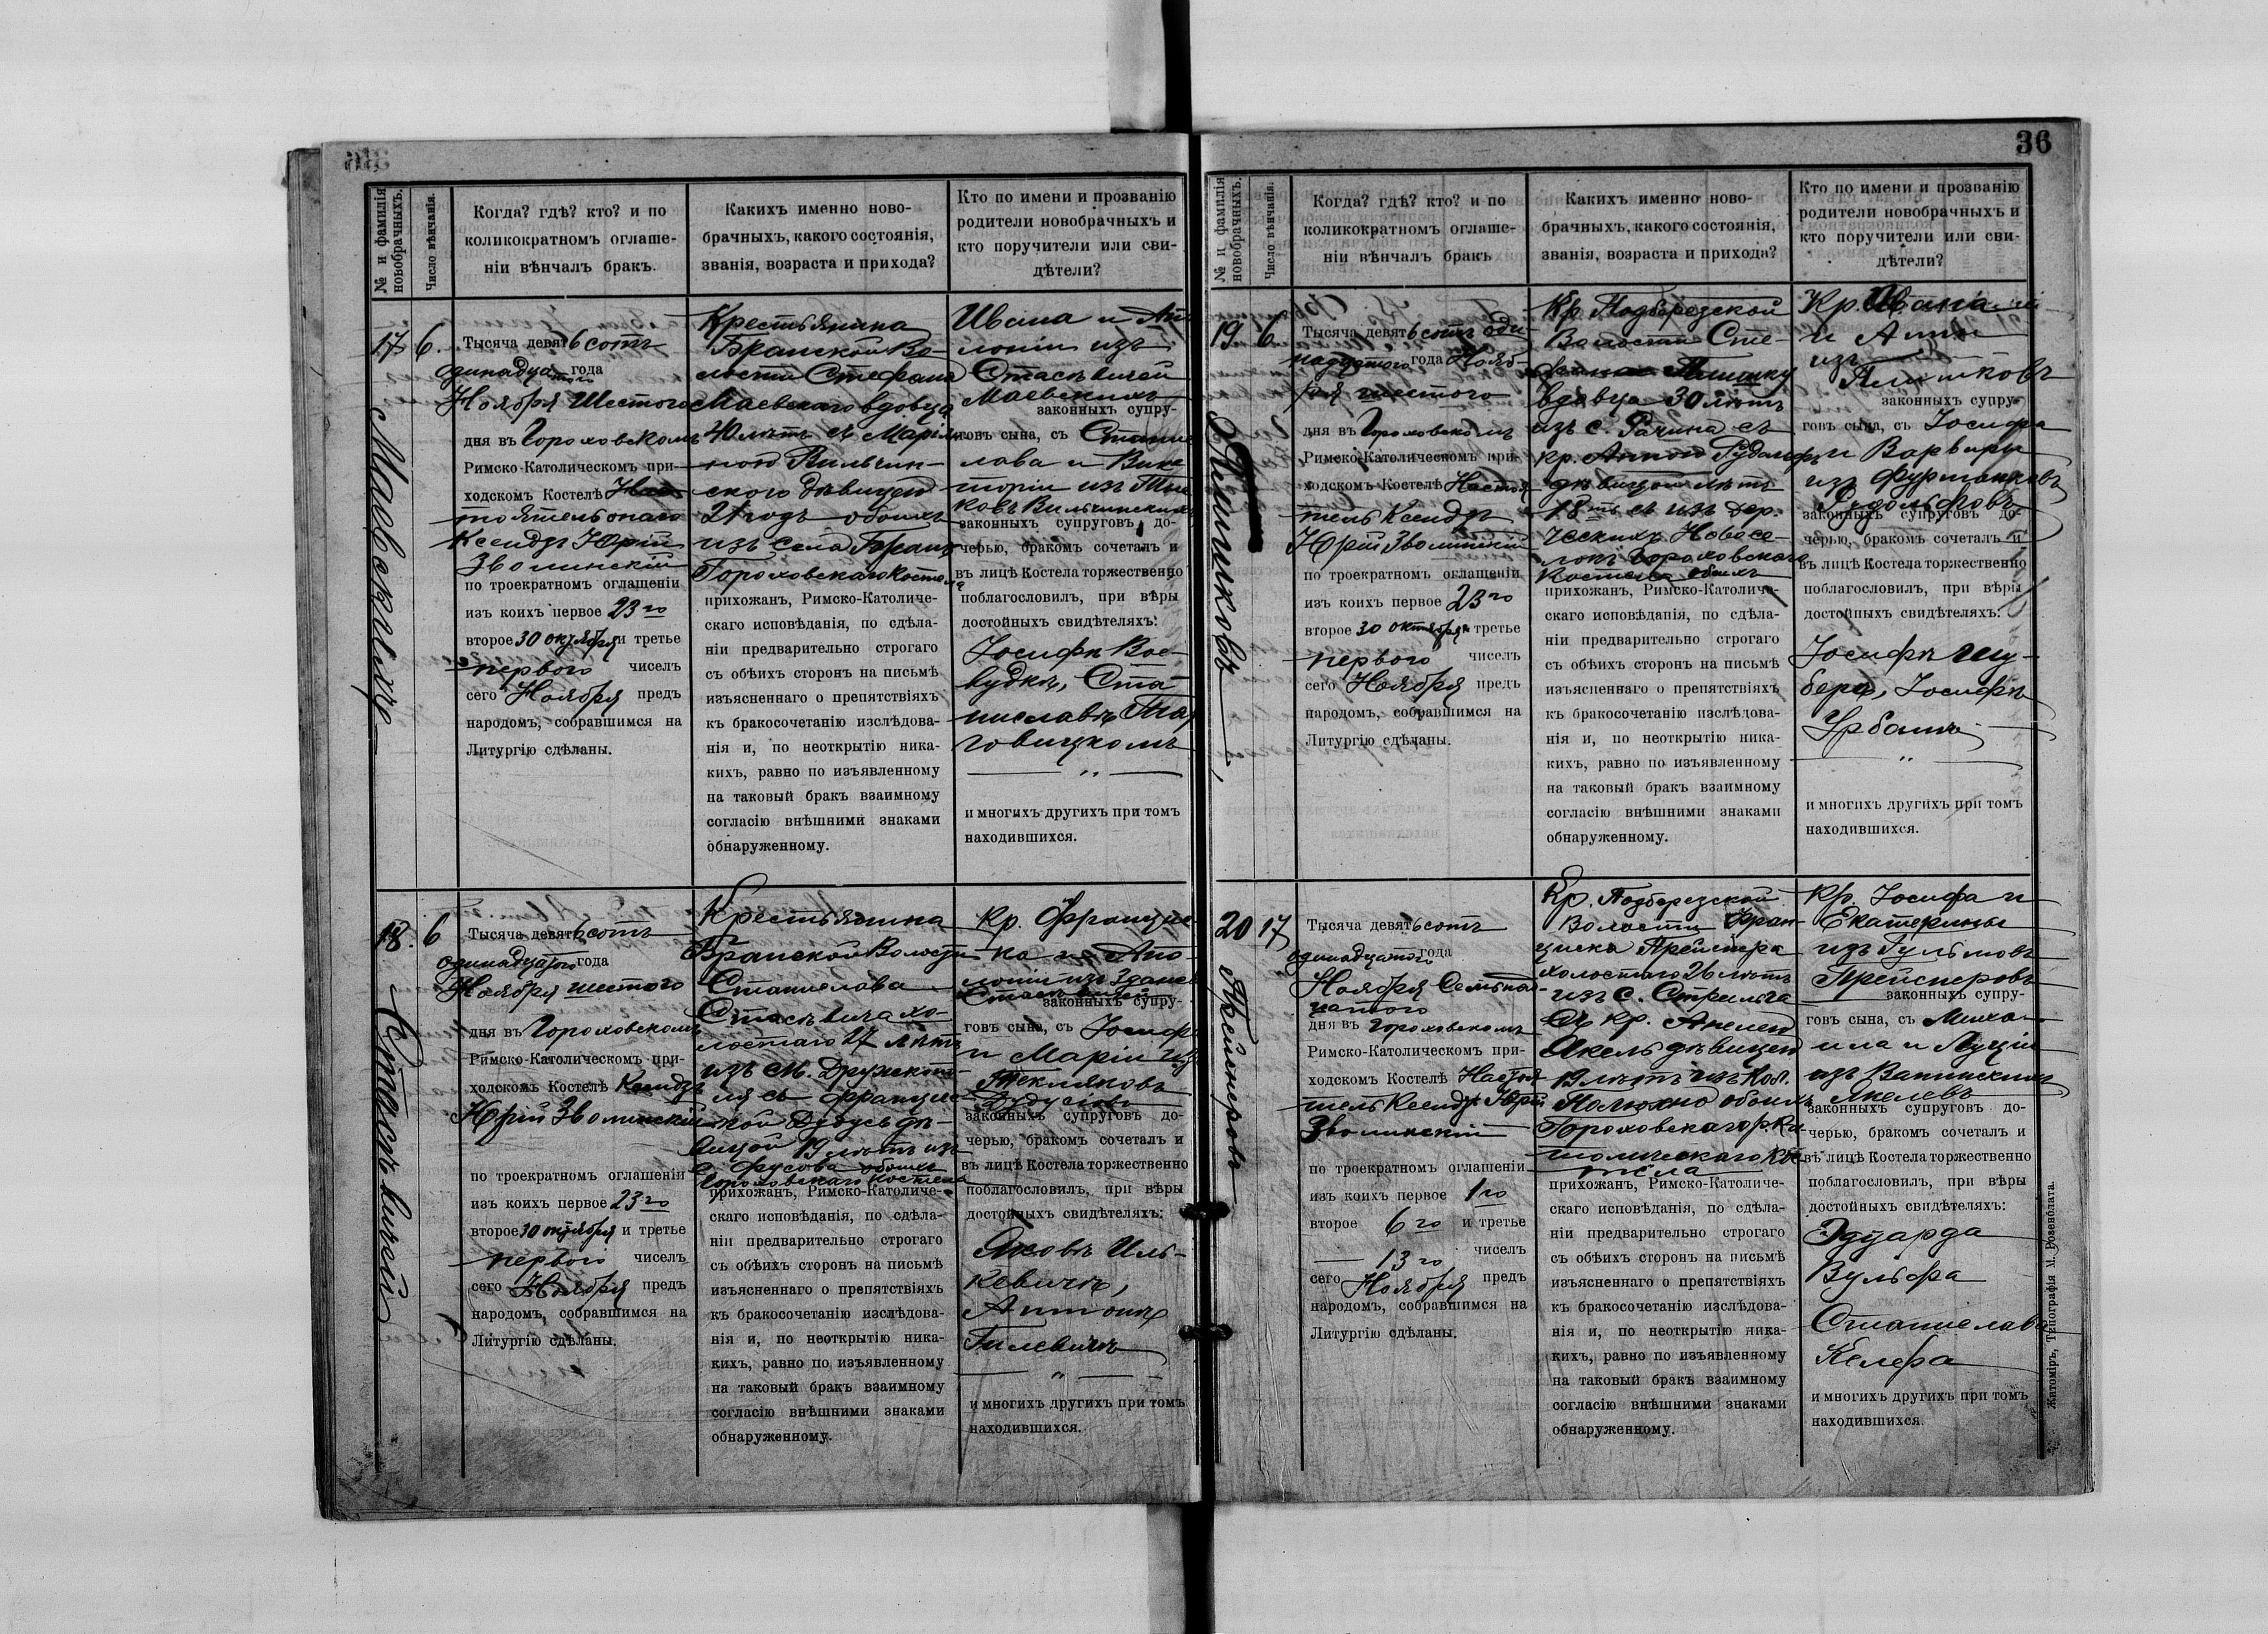 36
№ и фамилія новобрачныхъ.
Число вѣнчанія.
Когда? гдѣ? кто? и по
коликократномъ оглаше-
ніи вѣнчалъ бракъ.
Какихъ именно ново-
брачныхъ, какого состоянія,
званія, возраста и прихода?
Кто по имени и прозванію
родители новобрачныхъ и
кто поручители или сви-
дѣтели?
17
Маевскихъ
6.
Тысяча девятьсотъ
одинадцатого года
Ноября Шестого
дня въ Гороховскомъ
Римско-Католическомъ при-
ходскомъ Костелѣ
Ксендзъ Юрій
Зволинскій
по троекратномъ оглашеніи
изъ коихъ первое 23го
второе 30 октября и третье
первого чиселъ
сего Ноября предъ
народомъ, собравшимся на
Литургію сдѣланы.
Крестьянина
Бранской Во-
лости Стефана
Маевскаго вдовца
40 лѣтъ съ Марія-
ною Вильчин-
ского дѣвицею
21 годъ обоихъ
изъ села
Гороховскаго Костела
прихожанъ, Римско-Католиче-
скаго исповѣданія, по сдѣла-
ніи предварительно строгаго
съ обѣихъ сторонъ на письмѣ
изъясненнаго о препятствіяхъ
къ бракосочетанію изслѣдова-
нія и, по неоткрытію ника-
кихъ, равно по изъявленному
на таковый бракъ взаимному
согласію внѣшними знаками
обнаруженному.
Ивана и Апо-
лоніи изъ
Стасѣвичей
Маевскихъ
законныхъ супру-
говъ сына, съ Станис
лава и Вик
торіи изъ
Вильчинскихъ
законныхъ супруговъ до-
черью, бракомъ сочеталъ и
въ лицѣ Костела торжественно
поблагословилъ, при вѣры
достойныхъ свидѣтеляхъ:
Іосифѣ Вое-
вудка, Ста-
ниславѣ Тар
говицкомъ
и многихъ другихъ при томъ
находившихся.
18.
Стасѣвичей
6
Тысяча девятьсотъ
одинадцатого года
Ноября шестого
дня въ Гороховскомъ
Римско-Католическомъ при-
ходскомъ Костелѣ Ксендзъ
Юрій Зволинскій
по троекратномъ оглашеніи
изъ коихъ первое 23го
второе 30 октября и третье
первого чиселъ
сего Ноября предъ
народомъ, собравшимся на
Литургію сдѣланы.
Крестьянина
Бранской Волости
Станислава
Стасѣвича хо-
лостаго 27 лѣтъ
изъ с.
съ Францис-
кой Дудусь дѣ-
вицой 19 лѣтъ изъ
с. обоихъ
Гороховскаго костела
прихожанъ, Римско-Католиче-
скаго исповѣданія, по сдѣла-
ніи предварительно строгаго
съ обѣихъ сторонъ на письмѣ
изъясненнаго о препятствіяхъ
къ бракосочетанію изслѣдова-
нія и, по неоткрытію ника-
кихъ, равно по изъявленному
на таковый бракъ взаимному
согласію внѣшними знаками
обнаруженному.
Кр. Францис-
ка и Апо-
лоніи изъ
Стасѣвичей
законныхъ супру-
говъ сына, съ Іосифа
и Маріи изъ
Текляковъ
Дудусовъ
законныхъ супруговъ до-
черью, бракомъ сочеталъ и
въ лицѣ Костела торжественно
поблагословилъ, при вѣры
достойныхъ свидѣтеляхъ:
Яковѣ Иль-
кевичѣ,
Антонѣ
Гилевичѣ
и многихъ другихъ при томъ
находившихся.
№ и фамилія новобрачныхъ.
Число вѣнчанія.
Когда? гдѣ? кто? и по
коликократномъ оглаше-
ніи вѣнчалъ бракъ
Какихъ именно ново-
брачныхъ, какого состоянія,
званія, возраста и прихода?
Кто по имени и прозванію
родители новобрачныхъ и
кто поручители или сви-
дѣтели?
19
6
Тысяча девятьсотъ оди-
надцатого года Нояб-
ря шестого
дня въ Гороховскомъ
Римско-Католическомъ при-
ходскомъ Костелѣ Настоя
тель Ксендзъ
Юрій Зволинскій
по троекратномъ оглашеніи
изъ коихъ первое 23го
второе 30 октября и третье
первого чиселъ
сего Ноября предъ
народомъ, собравшимся на
Литургію сдѣланы.
Кр. Подберезской
Волости Сте-
вдовца 30 лѣтъ
изъ с. Рачина съ
кр. Анною
дѣвицою лѣтъ
18 изъ дер.
Ческихъ Новосе-
локъ Гороховскаго
Костела обоихъ
прихожанъ, Римско-Католиче-
скаго исповѣданія, по сдѣла-
ніи предварительно строгаго
съ обѣихъ сторонъ на письмѣ
изъясненнаго о препятствіяхъ
къ бракосочетанію изслѣдова-
нія и, по неоткрытію ника-
кихъ, равно по изъявленному
на таковый бракъ взаимному
согласію внѣшними знаками
обнаруженному.
Кр. Ивана
и Анны
изъ
законныхъ супру-
говъ сына, съ Іосифа
и Варвары
изъ Фурманковъ
Рудольфовъ
законныхъ супруговъ до-
черью, бракомъ сочеталъ и
въ лицѣ Костела торжественно
поблагословилъ, при вѣры
достойныхъ свидѣтеляхъ:
Іосифѣ Шу-
бера, Іосифѣ
Урбанѣ
и многихъ другихъ при томъ
находившихся.
20
Прейснеровъ
17
Тысяча девятьсотъ
одинадцатого года
Ноября Семьнад-
цатого
дня въ Гороховскомъ
Римско-Католическомъ при-
ходскомъ Костелѣ Настоя-
тель Ксендзъ Юрій
Зволинскій
по троекратномъ оглашеніи
изъ коихъ первое 1го
второе 6го и третье
13го чиселъ
сего Ноября предъ
народомъ, собравшимся на
Литургію сдѣланы.
Кр. Подберезской
Волости Фран-
циска Прейснера
холостаго 26 лѣтъ
изъ с. Стрильча
съ кр. Анелею
Якель дѣвицею
19 лѣтъ изъ Кол.
Полюхно обоихъ
Гороховскаго Р. Ка-
толическаго Кос
тела
прихожанъ, Римско-Католиче-
скаго исповѣданія, по сдѣла-
ніи предварительно строгаго
съ обѣихъ сторонъ на письмѣ
изъясненнаго о препятствіяхъ
къ бракосочетанію изслѣдова-
нія и, по неоткрытію ника-
кихъ, равно по изъявленному
на таковый бракъ взаимному
согласію внѣшними знаками
обнаруженному.
Кр. Іосифа и
Екатерины
изъ
Прейснеровъ
законныхъ супру-
говъ сына, съ Миха-
ила и Луціи
изъ
Якелевъ
законныхъ супруговъ до-
черью, бракомъ сочеталъ и
въ лицѣ Костела торжественно
поблагословилъ, при вѣры
достойныхъ свидѣтеляхъ:
Эдуарда
Вульфа
Станислава
Келера
и многихъ другихъ при томъ
находившихся.
Житоміръ, Типографія М. Розенблата.